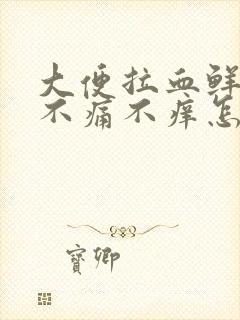 大便拉血鲜
不痛不痒怎
宝卿